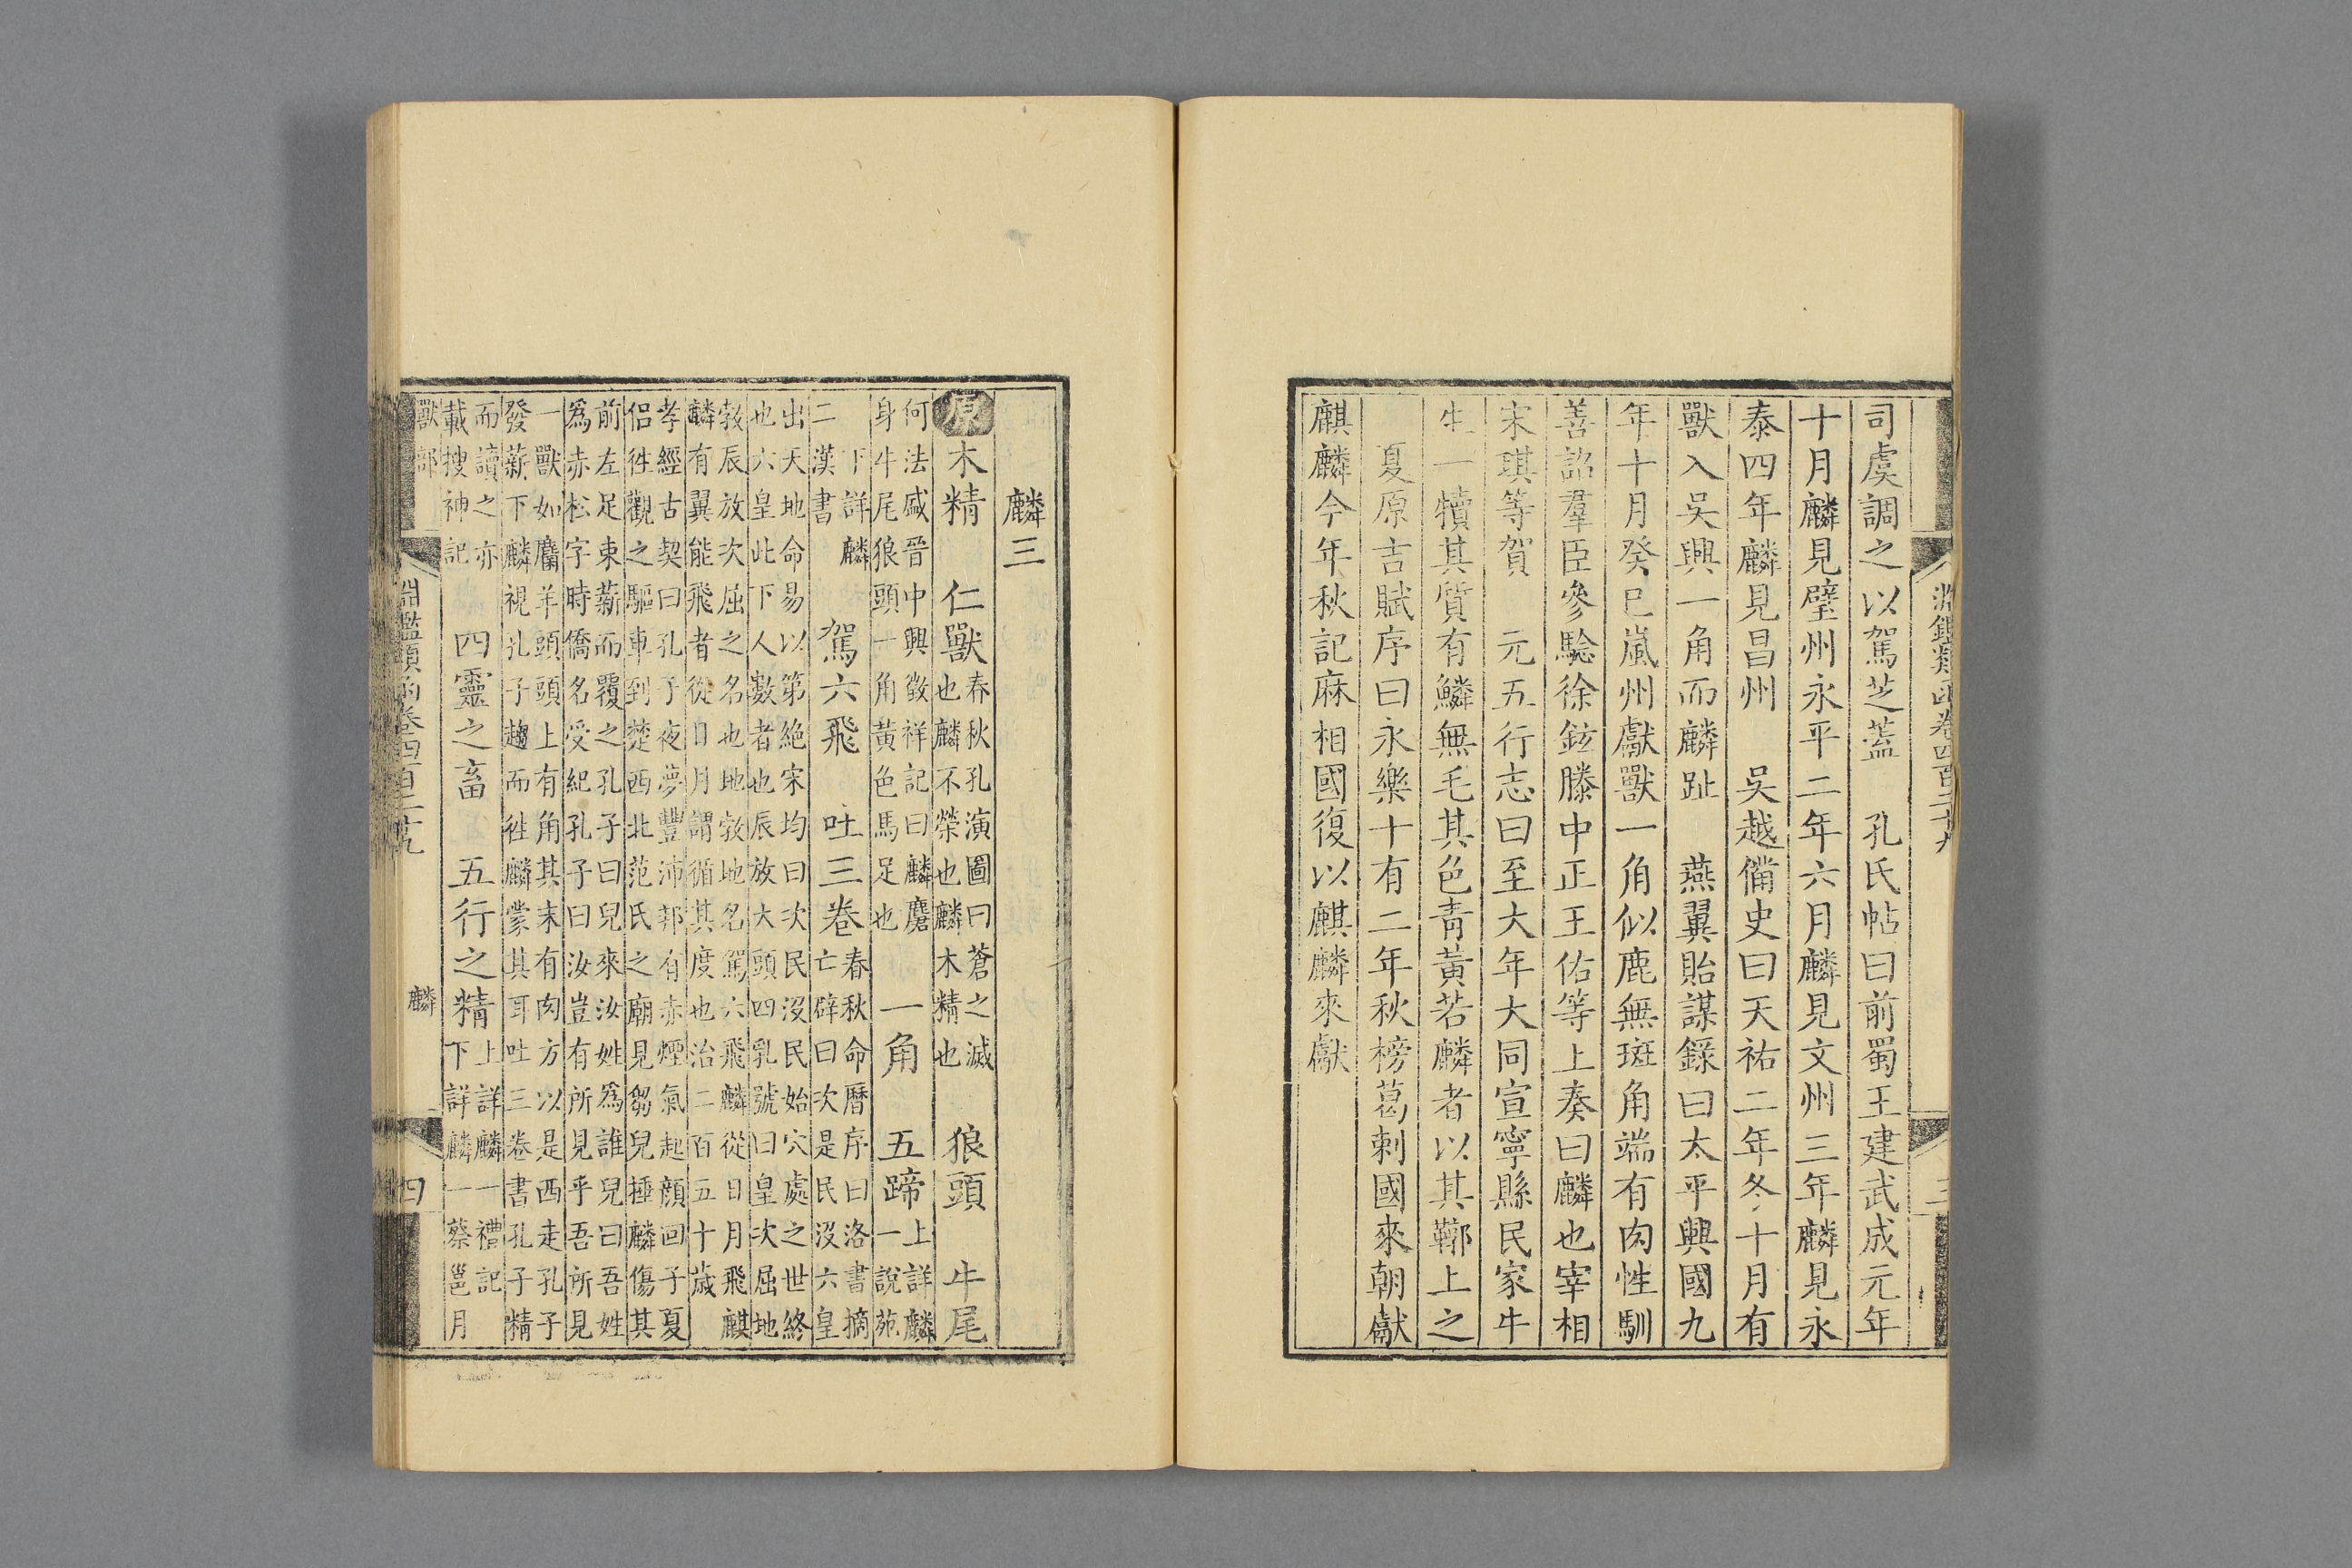 淵鑑類函卷四百二十九
三
司虞調之以駕芝蓋　孔氏帖曰前蜀王建武成元年
十月麟見璧州永平二年六月麟見文州三年麟見永
泰四年麟見昌州　吳越備史曰天祐二年冬十月有
獸入吳興一角而麟趾　燕翼貽謀錄曰太平興國九
年十月癸巳嵐州獻獸一角似鹿無斑角端有肉性馴
善詔羣臣參驗徐鉉滕中正王佑等上奏曰麟也宰相
宋琪等賀　元五行志曰至大年大同宣寧縣民家牛
生一犢其質有鱗無毛其色青黃若麟者以其鞹上之
夏原吉賦序曰永樂十有二年秋榜葛剌國來朝獻
麒麟今年秋記麻相國復以麒麟來獻
麟三
原木精　仁獸春秋孔演圖曰蒼之滅
也麟不榮也麟木精也　狼頭　牛尾
何法盛晉中興徵祥記曰麟麏
身牛尾狼頭一角黃色馬足也　一角　五蹄上詳麟
一說苑
下詳麟
二漢書　駕六飛　吐三卷春秋命曆序曰洛書摘
亡辟曰次是民沒六皇
出天地命易以第絕宋均曰次民沒民始穴處之世終
也六皇此下人數者也辰放大頭四乳號曰皇次屈地
敦辰放次屈之名也地敦地名駕六飛麟從日月飛麒
麟有翼能飛者從日月謂循其度也治二百五十歲
孝經古契曰孔子夜夢豐沛邦有赤煙氣起顏回子夏
侶徃觀之驅車到楚西北范氏之廟見芻兒捶麟傷其
前左足束薪而覆之孔子曰兒來汝姓爲誰兒曰吾姓
爲赤松字時僑名受紀孔子曰汝豈有所見乎吾所見
一獸如麕羊頭頭上有角其末有肉方以是西走孔子
發薪下麟視孔子趨而徃麟蒙其耳吐三卷書孔子精
而讀之亦
載搜神記　四靈之畜　五行之精上詳麟一禮記
下詳麟一蔡邕月
獸部
麟
淵鑑類函卷四百二十九
四